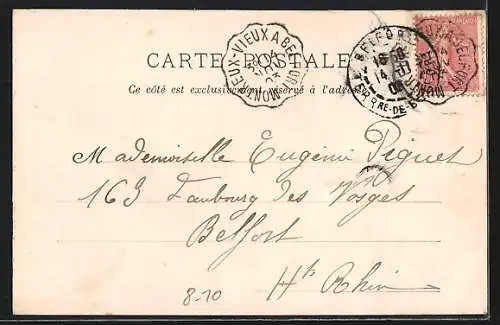 CARTE POSTALE
Ce côté est exclusivement réservé à l'adresse
MONTREUX-VIEUX A BELFORT
BELFORT
Mademoiselle Eugénie Piguet
163 Faubourg des Vosges
Belfort
Ht Rhin
8-10